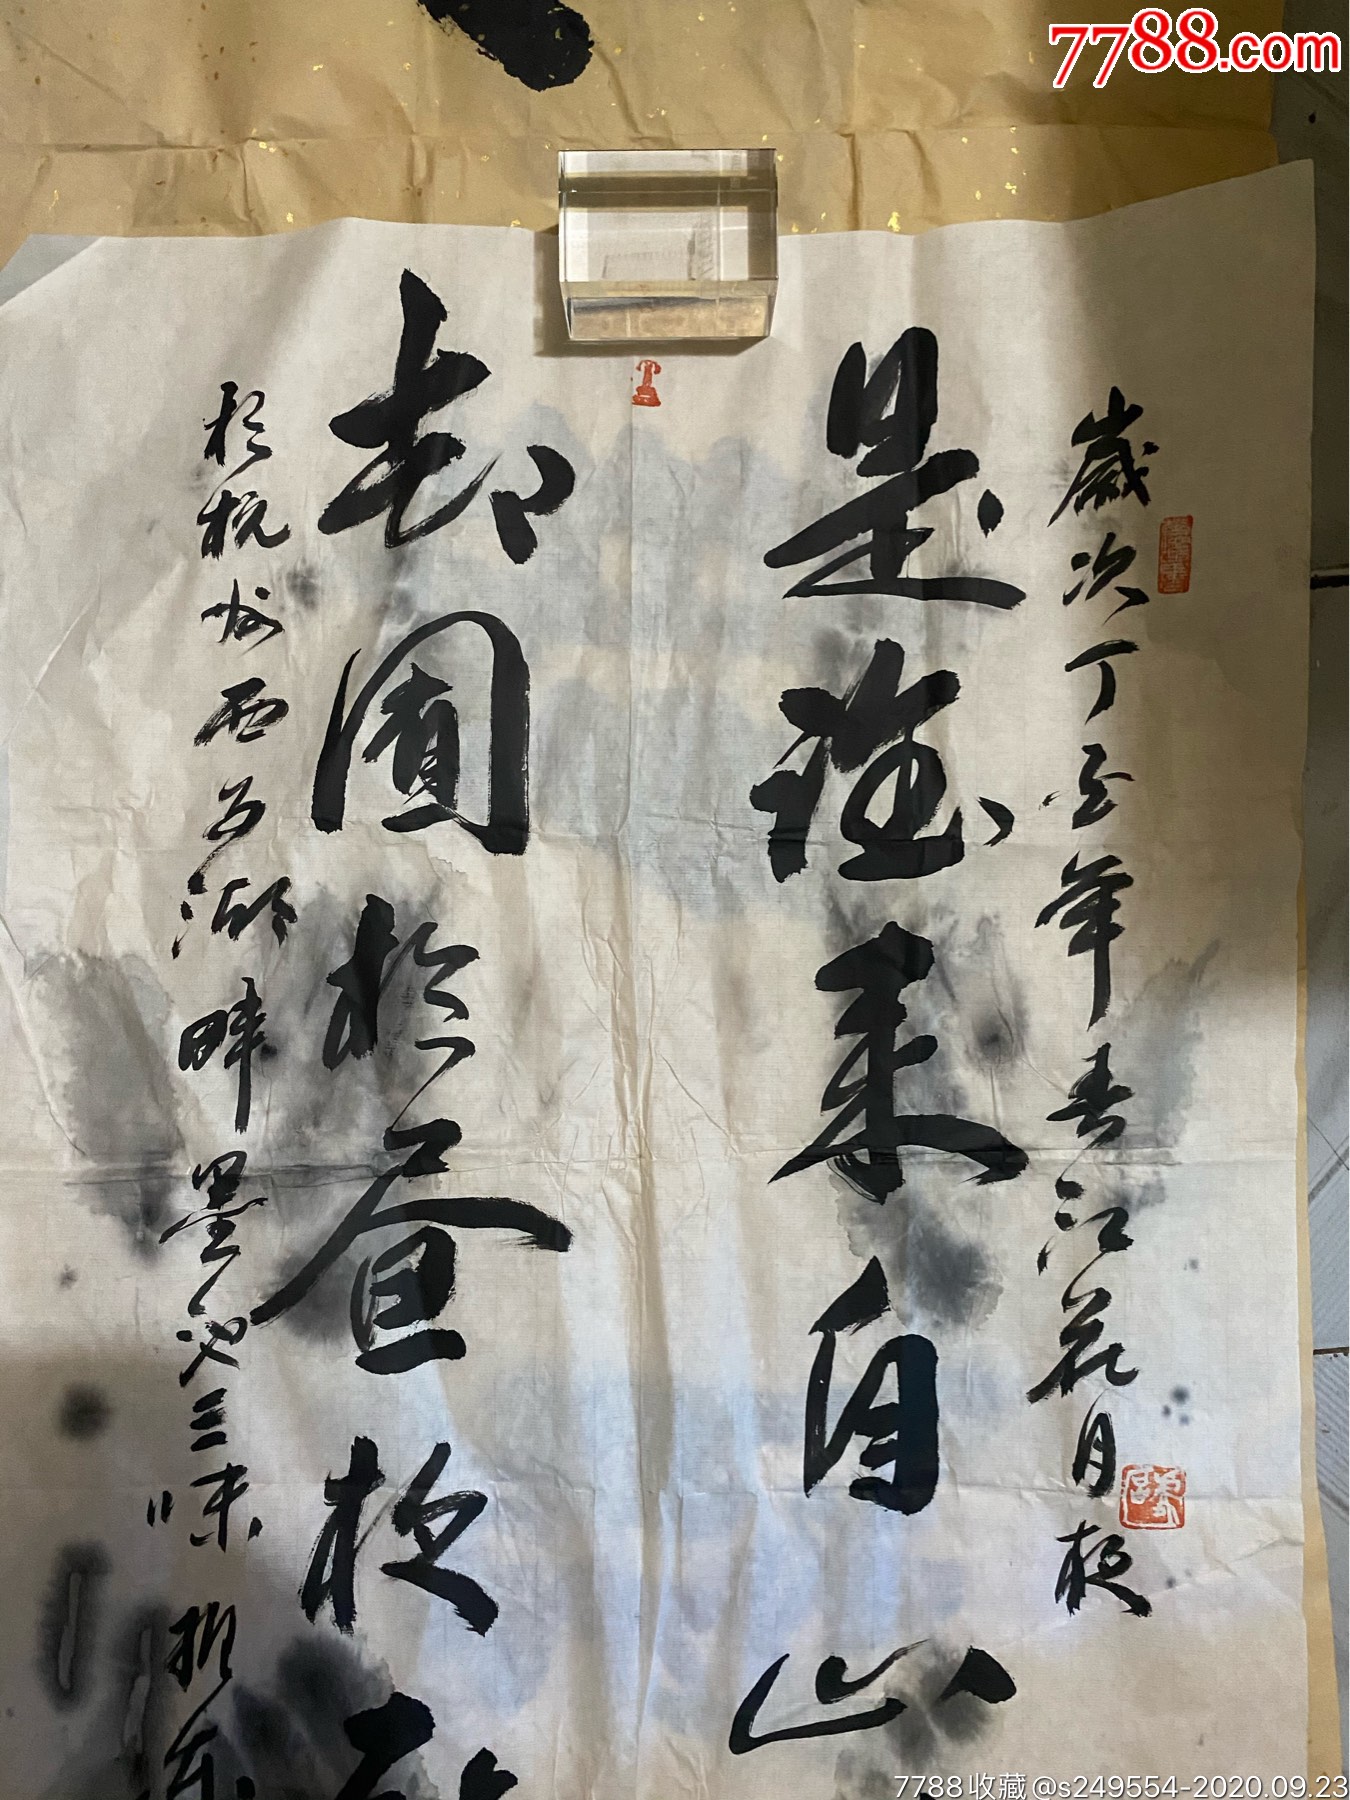 7788.com
歲次丁年春江花月夜
是誰来自山
却囿於昼夜
於杭州西子湖畔墨池三味
7788收藏@s249554-2020.09.23